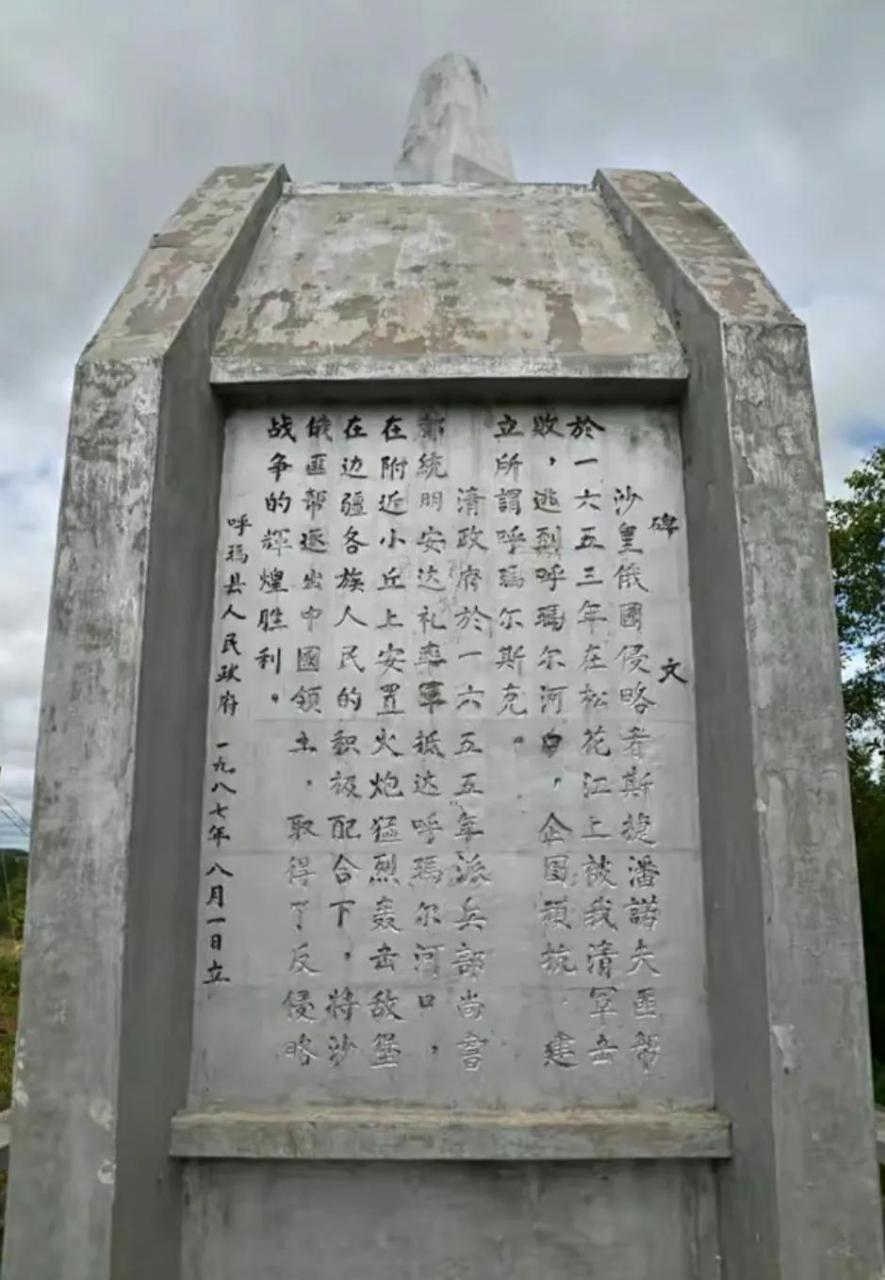 碑文
沙皇俄國侵略者斯捷潘諾夫匪帮
於一六五三年在松花江上被我清軍击
败，逃到呼瑪尔河口，企图頑抗．建
立所謂呼瑪尔斯克。
清政府於一六五五年派兵部尚書
都統明安达礼率軍抵达呼瑪尔河口，
在附近小丘上安置火炮猛烈轰击敌堡
在边疆各族人民的积极配合下，将沙
俄匪帮逐出中國領土．取得了反侵略
战争的輝煌胜利。
呼瑪县人民政府 一九八七年八月一日立